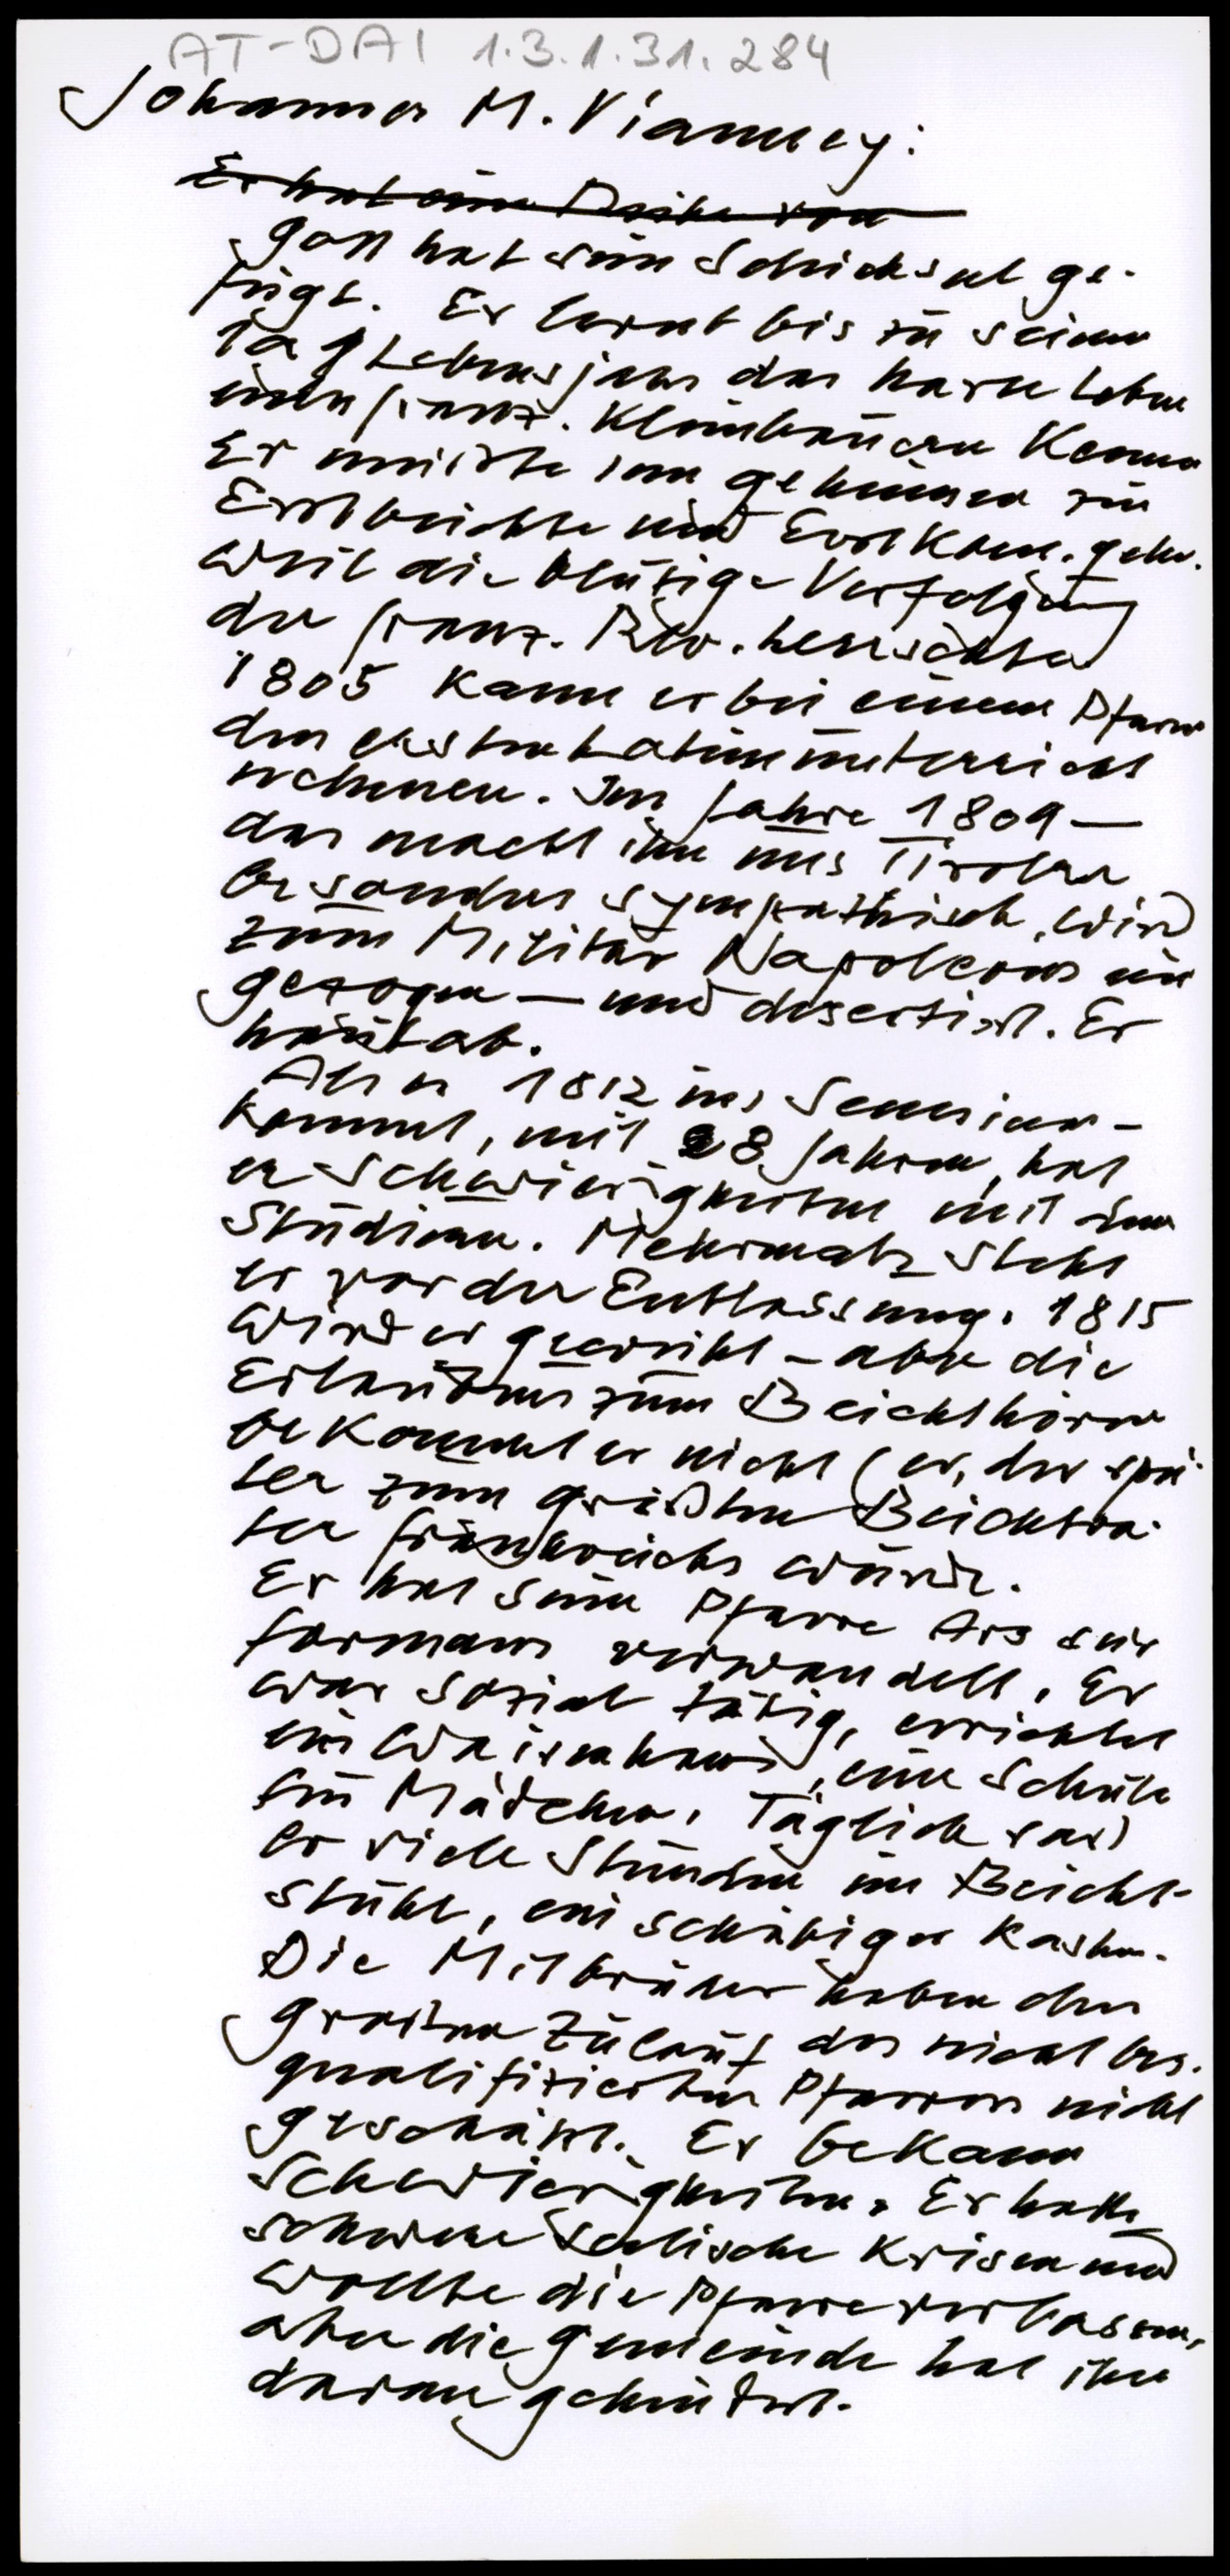 AT-DAI 1.3.1.31.284
Johannes M. Vianney:
Er hat eine von
Gott hat sein Schicksal ge-
fügt. Er lernt bis zu seinem
Lebensjahr das harte Leben
eines franz. Kleinbauern kennen
Er musste im geheimen zur
Erstbeichte und Erstkom. gehen.
weil die blutige Verfolgung
der franz. Rev. herrschte
1805 kann er bei einem Pfarrer
den ersten Lateinunterricht
nehmen. Im Jahre 1809 —
das macht ihn uns Tiroler
besonders sympathisch, wird
zum Militär Napoleons ein
gezogen — und desertiert. Er
haut ab.
Als er 1812 ins Seminar -
kommt, mit 28 Jahren, hat
er Schwierigkeiten mit dem
Studium. Mehrmals steht
er vor der Entlassung. 1815
wird er geweiht - aber die
Erlaubnis zum Beichthören
bekommt er nicht (er, der spä-
ter zum größten Beichtva-
ter Frankreichs wurde.
Er hat seine Pfarre Ars sur
Formans verwandelt. Er
war sozial tätig, errichtet
ein Waisenhaus, eine Schule
für Mädchen. Täglich saß
er viele Stunden im Beicht-
stuhl, ein schäbiger Kasten.
Die Mitbrüder haben den
großen Zulauf des nicht bes.
qualifizierten Pfarrers nicht
geschätzt. Er bekam
Schwierigkeiten. Er hatte
schwere seelische Krisen und
wollte die Pfarre verlassen,
aber die Gemeinde hat ihn
daran gehindert.